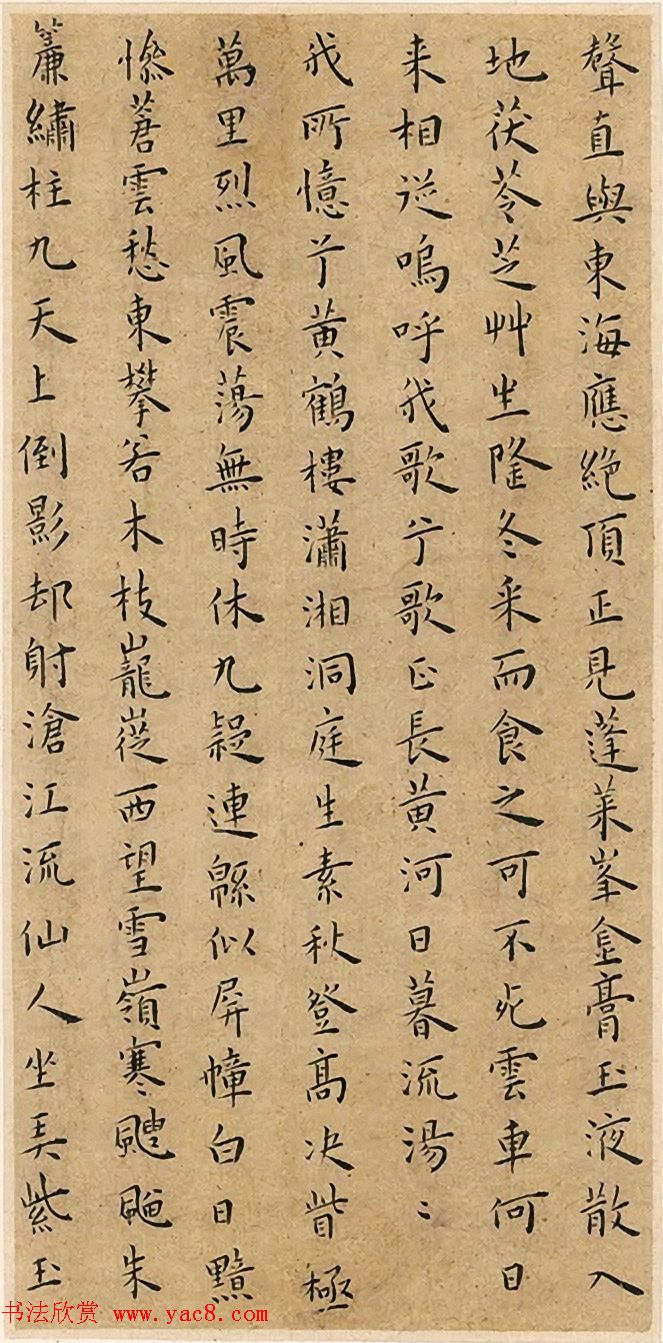 聲直與東海應絕頂正見蓬萊峯金膏玉液散入
地茯苓芝艸生隆冬采而食之可不死雲車何日
来相從嗚呼我歌兮歌正長黃河日暮流湯〻
我所憶兮黃鶴樓瀟湘洞庭生素秋登高決眥極
萬里烈風震蕩無時休九疑連緜似屏幛白日黯
惨蒼雲愁東攀若木枝巃嵷西望雪嶺寒颼飀朱
簾繡柱九天上倒影却射滄江流仙人坐弄紫玉
书法欣赏 www.yac8.com